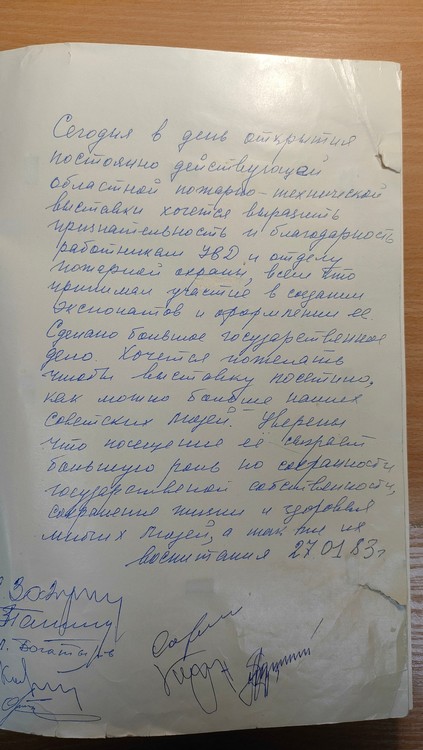 Сегодня в день открытия
постоянно действующей
областной пожарно-технической
выставки хочется выразить
признательность и благодарность
работникам УВД и отделу
пожарной охраны, всем кто
принимал участие в создании
экспонатов и оформлении её.
Сделано большое государственное
дело. Хочется пожелать
чтобы выставку посетило,
как можно больше наших
советских людей. Уверены
что посещение её сыграет
большую роль по сохранности
государственной собственности,
сохранения жизни и здоровья
многих людей, а так же их
воспитания 27.01.83г